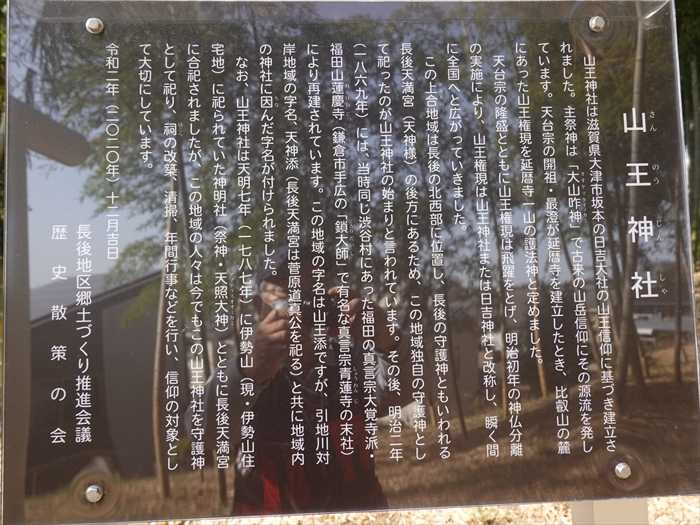 山王神社
さんのうじんじゃ
山王神社は滋賀県大津市坂本の日吉大社の山王信仰に基づき建立さ
れました。主祭神は「大山咋神」で古来の山岳信仰にその源流を発し
ています。天台宗の開祖・最澄が延暦寺を建立したとき、比叡山の麓
にあった山王権現を延暦寺一山の護法神と定めました。
天台宗の隆盛とともに山王権現は飛躍をとげ、明治初年の神仏分離
の実施により、山王権現は山王神社または日吉神社と改称し、瞬く間
に全国へと広がっていきました。
この上合地域は長後の北西部に位置し、長後の守護神ともいわれる
長後天満宮（天神様）の後方にあるため、この地域独自の守護神とし
て祀ったのが山王神社の始まりと言われています。その後、明治二年
（一八六九年）には、当時同じ渋谷村にあった福田の真言宗大覚寺派・
福田山蓮慶寺（鎌倉市手広の「鎖大師」で有名な真言宗青蓮寺の末社）
により再建されています。この地域の字名は山王添ですが、引地川対
岸地域の字名、天神添（長後天満宮は菅原道真公を祀る）と共に地域内
の神社に因んだ字名が付けられました。
なお、山王神社は天明七年（一七八七年）に伊勢山（現・伊勢山住
宅地）に祀られていた神明社（祭神・天照大神）とともに長後天満宮
に合祀されましたが、この地域の人々は今でもこの山王神社を守護神
として祀り、祠の改築、清掃、年間行事などを行い、信仰の対象とし
て大切にしています。
令和二年（二〇二〇年）十二月吉日
長後地区郷土づくり推進会議
歴史散策の会